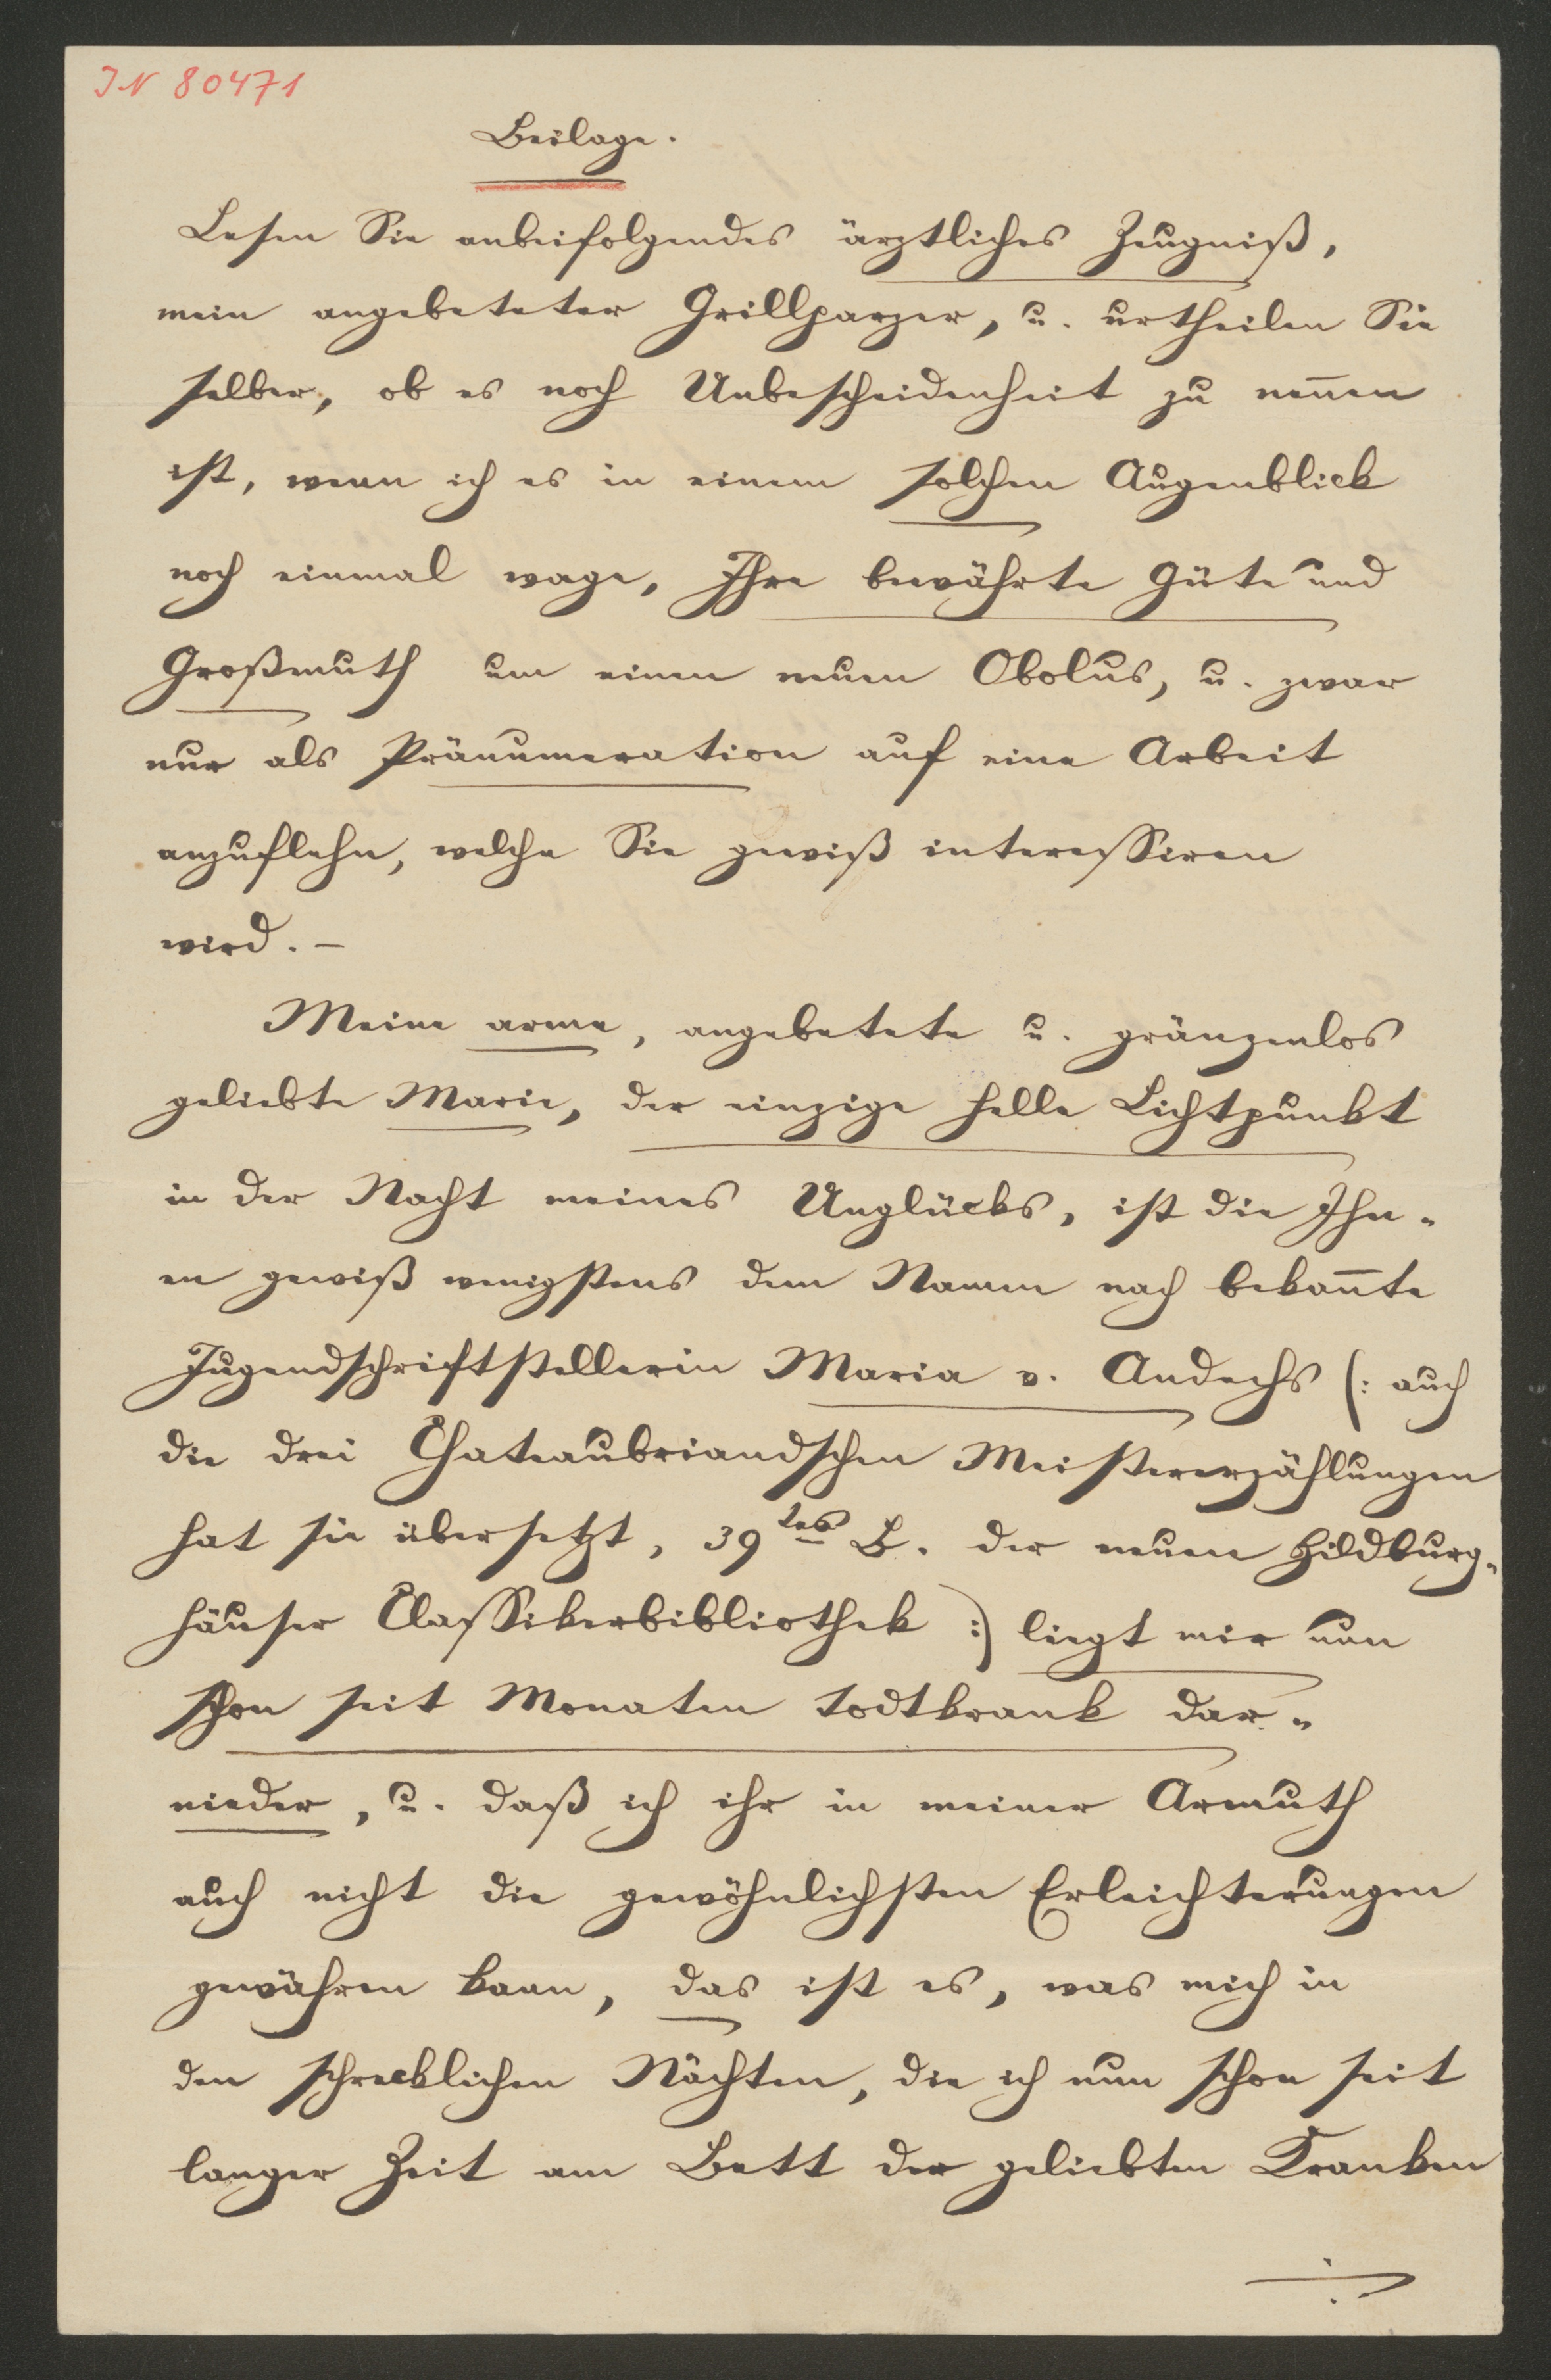 IN 80471
Beilage.
Lesen Sie anbeifolgendes ärztliches Zeugniß,
mein angebeteter Grillparzer, u. urtheilen Sie
selber, ob es noch Unbescheidenheit zu nen̄en
ist, wenn ich es in einem solchen Augenblick
noch einmal wage, Ihre bewährte Güte und
Großmuth um einen neuen Obolus, u. zwar
nur als Pränumeration auf eine Arbeit
anzuflehn, welche Sie gewiß interessiren
wird. –
Meine arme, angebetete u. gränzenlos
geliebte Marie, der einzige helle Lichtpunkt
in der Nacht meines Unglücks, ist die Ihn-
en gewiß wenigstens dem Namen nach bekan̄te
Jugendschriftstellerin Maria v. Andechs (: auch
die drei Chateaubriandschen Meistererzählungen
hat sie übersetzt, 39tes B. der neuen Hildburg-
häuser Classikerbibliothek :) liegt mir nun
schon seit Monaten todtkrank dar-
nieder, u. daß ich ihr in meiner Armuth
auch nicht die gewöhnlichsten Erleichterungen
gewähren kann, das ist es, was mich in
den schrecklichen Nächten, die ich nun schon seit
langer Zeit am Bett der geliebten Kranken